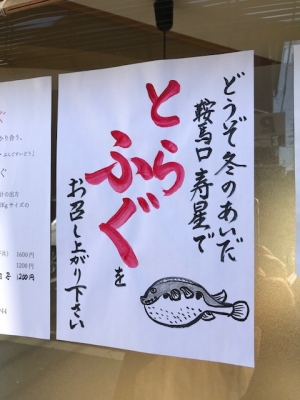 どうぞ冬のあいだ
鞍馬口 寿星で
とらふぐを
お召し上がり下さい
ぐ
1600円
1200円
1200円